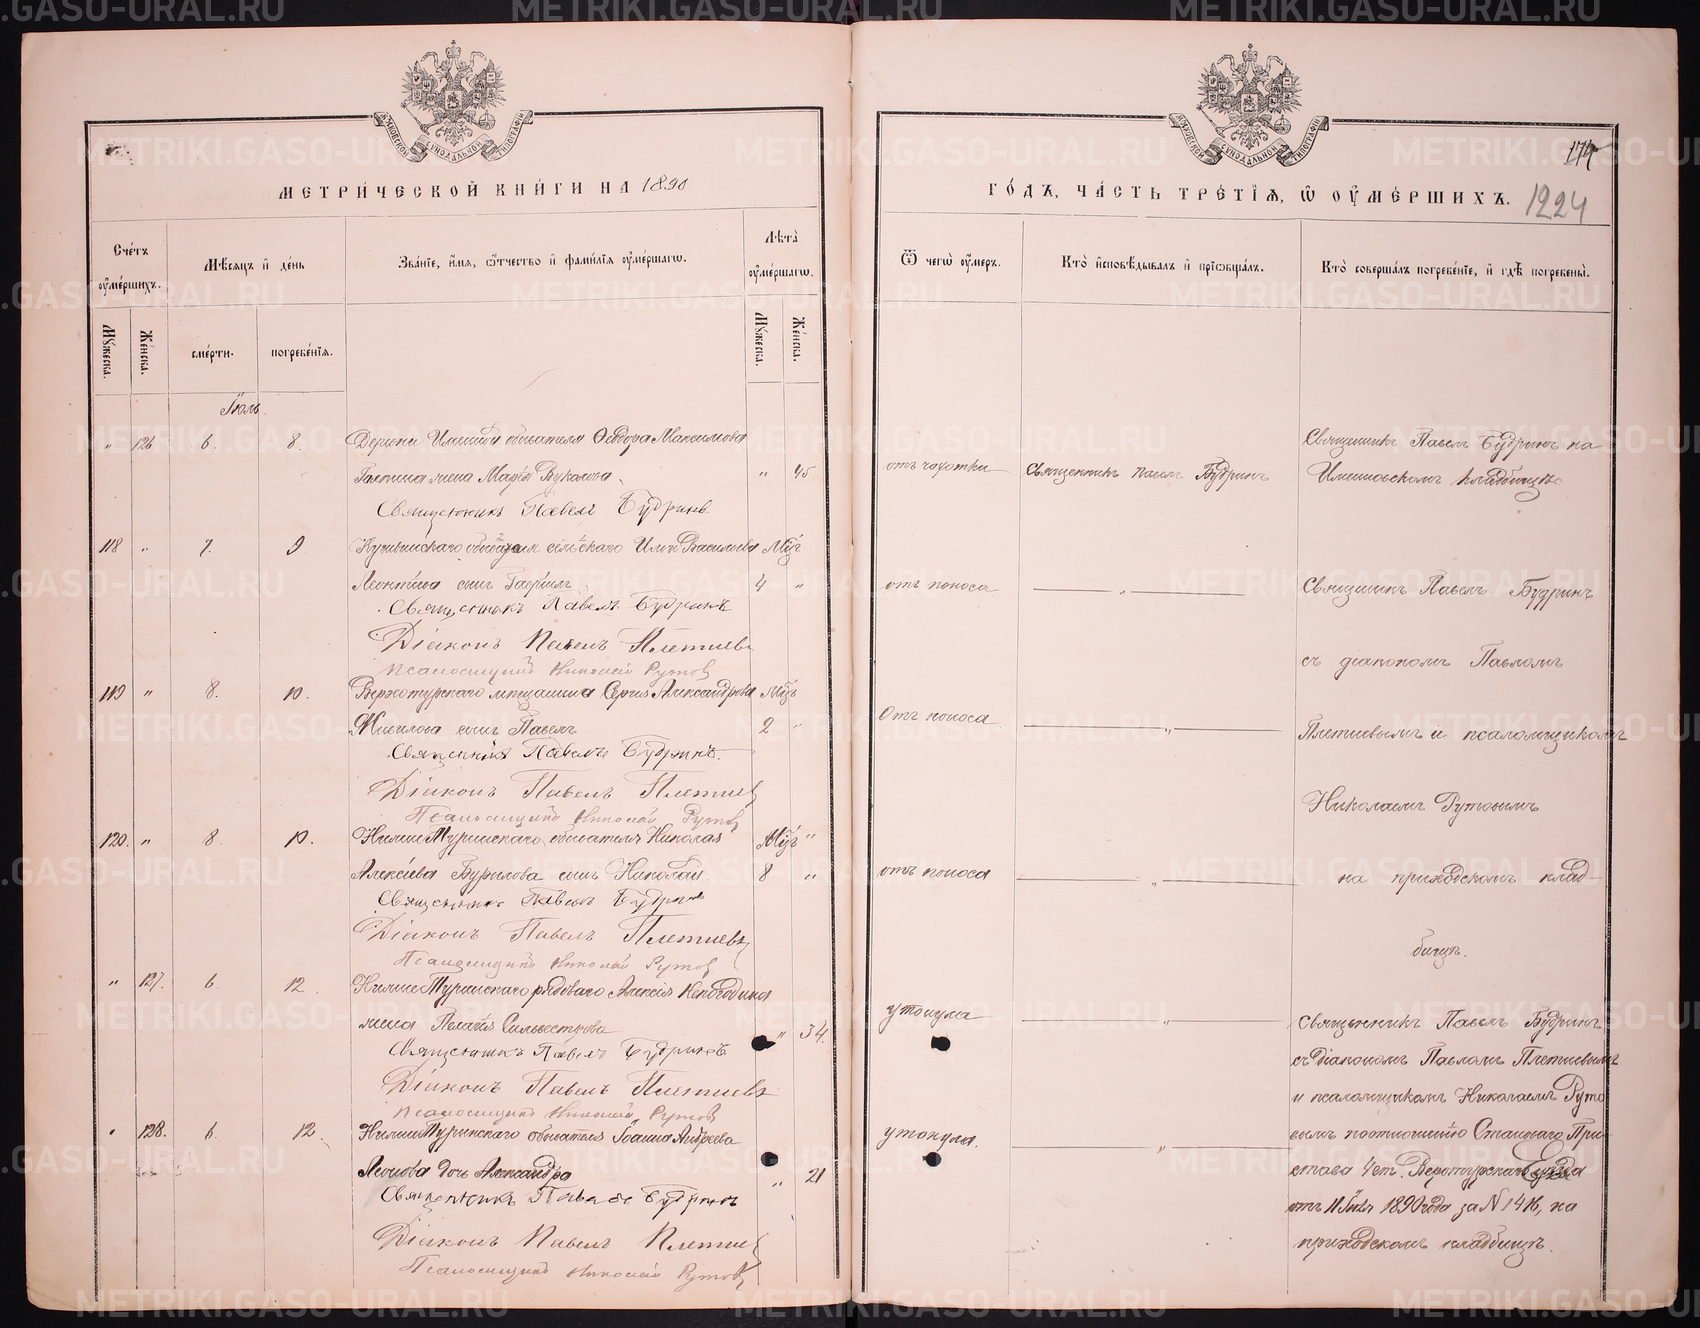 МЕТРИЧЕСКОЙ КНИГИ НА 1890
Счетъ умершихъ.
Мѣсяцъ и день
Званіе, имя, отчество и фамилія умершаго.
Лѣта умершаго.
Мужеска.
Женска.
смерти.
погребенія.
Мужеска.
Женска.
Іюль.
" 126 6. 8. Деревни обывателя Ѳеодора Максимова
жена Марѳа Вуколова " 45.
Священникъ Павелъ Будринъ
118 " 7. 9 Кушвинскаго сельскаго Ильи Васильева Мѣс
Леонтіева сынъ Гавріилъ 4 "
Священникъ Павелъ Будринъ
Діаконъ Павелъ Плетневъ
Псаломщикъ Николай Рутовъ
119 " 8. 10. Верхотурскаго мѣщанина Сергія Александрова Мѣс
сынъ Павелъ 2 "
Священникъ Павелъ Будринъ.
Діаконъ Павелъ Плетнев
Псаломщикъ Николай Рутовъ
120. " 8. 10. НижнеТуринскаго обывателя Николая Мѣс "
Алексіева Бурилова сынъ Николай 8 "
Священникъ Павелъ Будринъ
Діаконъ Павелъ Плетневъ
Псаломщикъ Николай Рутовъ
" 127. 6. 12. НижнеТуринскаго рядоваго Алексія
жена Пелагія Сильвестрова " 34.
Священникъ Павелъ Будринъ
Діаконъ Павелъ Плетневъ
Псаломщикъ Николай Рутовъ
" 128. 6. 12. НижнеТуринскаго обывателя Іоанна Андреева
Леонова дочь Александра " 21
Священникъ Павелъ Будринъ
Діаконъ Павелъ Плетнев
Псаломщикъ Николай Рутовъ
1224
ГОДЪ, ЧАСТЬ ТРЕТІЯ, Ѡ ОУМЕРШИХЪ.
Ѿ чегѡ умеръ.
Кто исповѣдывалъ и пріобщалъ.
Кто совершалъ погребеніе, и гдѣ погребены.
отъ чахотки
Священникъ Павелъ Будринъ
Священникъ Павелъ Будринъ на
кладбищѣ
отъ поноса "
Священникъ Павелъ Будринъ
съ діакономъ Павломъ
Отъ поноса "
Плетневымъ и псаломщикомъ
Николаемъ Рутовымъ
отъ поноса "
на приходскомъ клад
бищѣ.
утонула "
Священникъ Павелъ Будринъ
съ Діакономъ Павломъ Плетневымъ
и псаломщикомъ Николаемъ Руто
утонула. "
вымъ по отношенію Становаго При-
става 4 ст. Верхотурскаго Уѣзда
отъ 11 Іюля 1890 года за N 1416, на
приходскомъ кладбищѣ.
МОСКОВСКОЙ СУНОДАЛЬНОЙ ТИПОГРАФІИ
МОСКОВСКОЙ СУНОДАЛЬНОЙ ТИПОГРАФІИ
METRIKI.GASO-URAL.RU